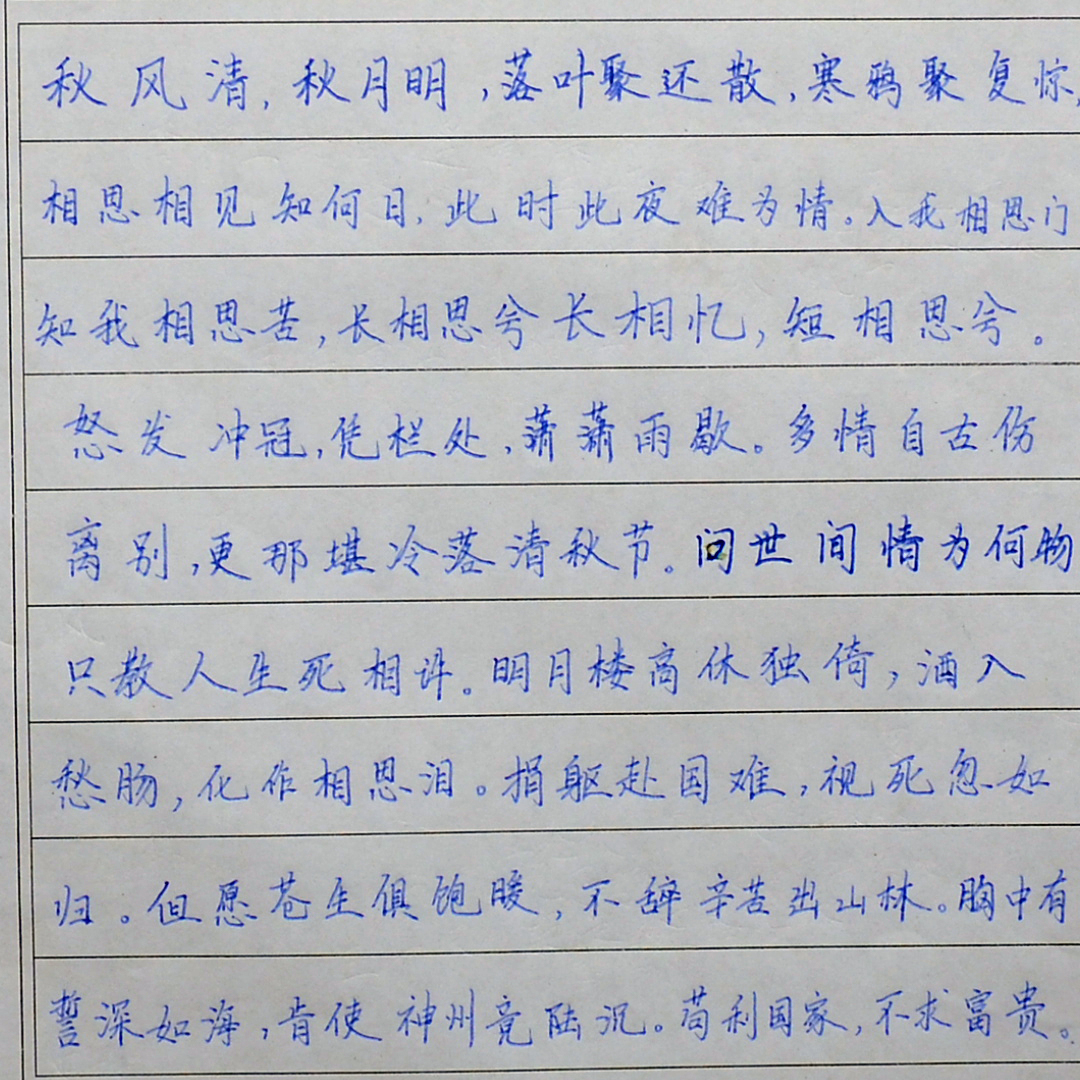 秋风清,秋月明,落叶聚还散,寒鸦聚复惊,
相思相见知何日,此时此夜难为情。入我相思门
知我相思苦,长相思兮长相忆,短相思兮。
怒发冲冠,凭栏处,萧萧雨歇。多情自古伤
离别,更那堪冷落清秋节。问世间情为何物
只教人生死相许。明月楼高休独倚,酒入
愁肠,化作相思泪。捐躯赴国难,视死忽如
归。但愿苍生俱饱暖,不辞辛苦出山林。胸中有
誓深如海,肯使神州竟陆沉。苟利国家,不求富贵。